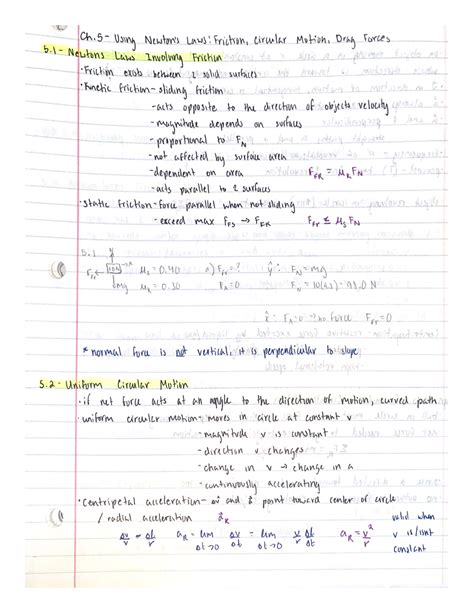 Ch.5 - Using Newton's Laws: Friction, Circular Motion, Drag Forces
5.1 - Newtons Laws Involving Friction
• Friction exists between 2 solid surfaces
• Kinetic friction - sliding friction
- acts opposite to the direction of objects velocity
- magnitude depends on surfaces
- proportional to F_N
- not affected by surface area
- dependent on area F_FR = μ_K F_N
- acts parallel to 2 surfaces
• static friction - force parallel when not sliding
- exceed max F_FS → F_FK F_fr ≤ μ_S F_N
5.1
F_fr ← 10N μ_s = 0.40 a) F_fr = ? ŷ: F_N = mg
mg μ_k = 0.30 F_A = 0 F_N = 10(9.8) = 98.0 N
x̂: F_A = 0 no force F_fr = 0
* normal force is not vertical, it is perpendicular to slope
5.2 - Uniform Circular Motion
• if net force acts at an angle to the direction of motion, curved path
• uniform circular motion - moves in circle at constant v
- magnitude v is constant
- direction v changes
- change in v → change in a
- continuously accelerating
• Centripetal acceleration - and point toward center of circle
/ radial acceleration a_R valid when
Δv/v = Δl/r a_R = lim Δt→0 Δv/Δt = lim Δt→0 v/r Δl/Δt a_R = v²/r v is/isnt
constant